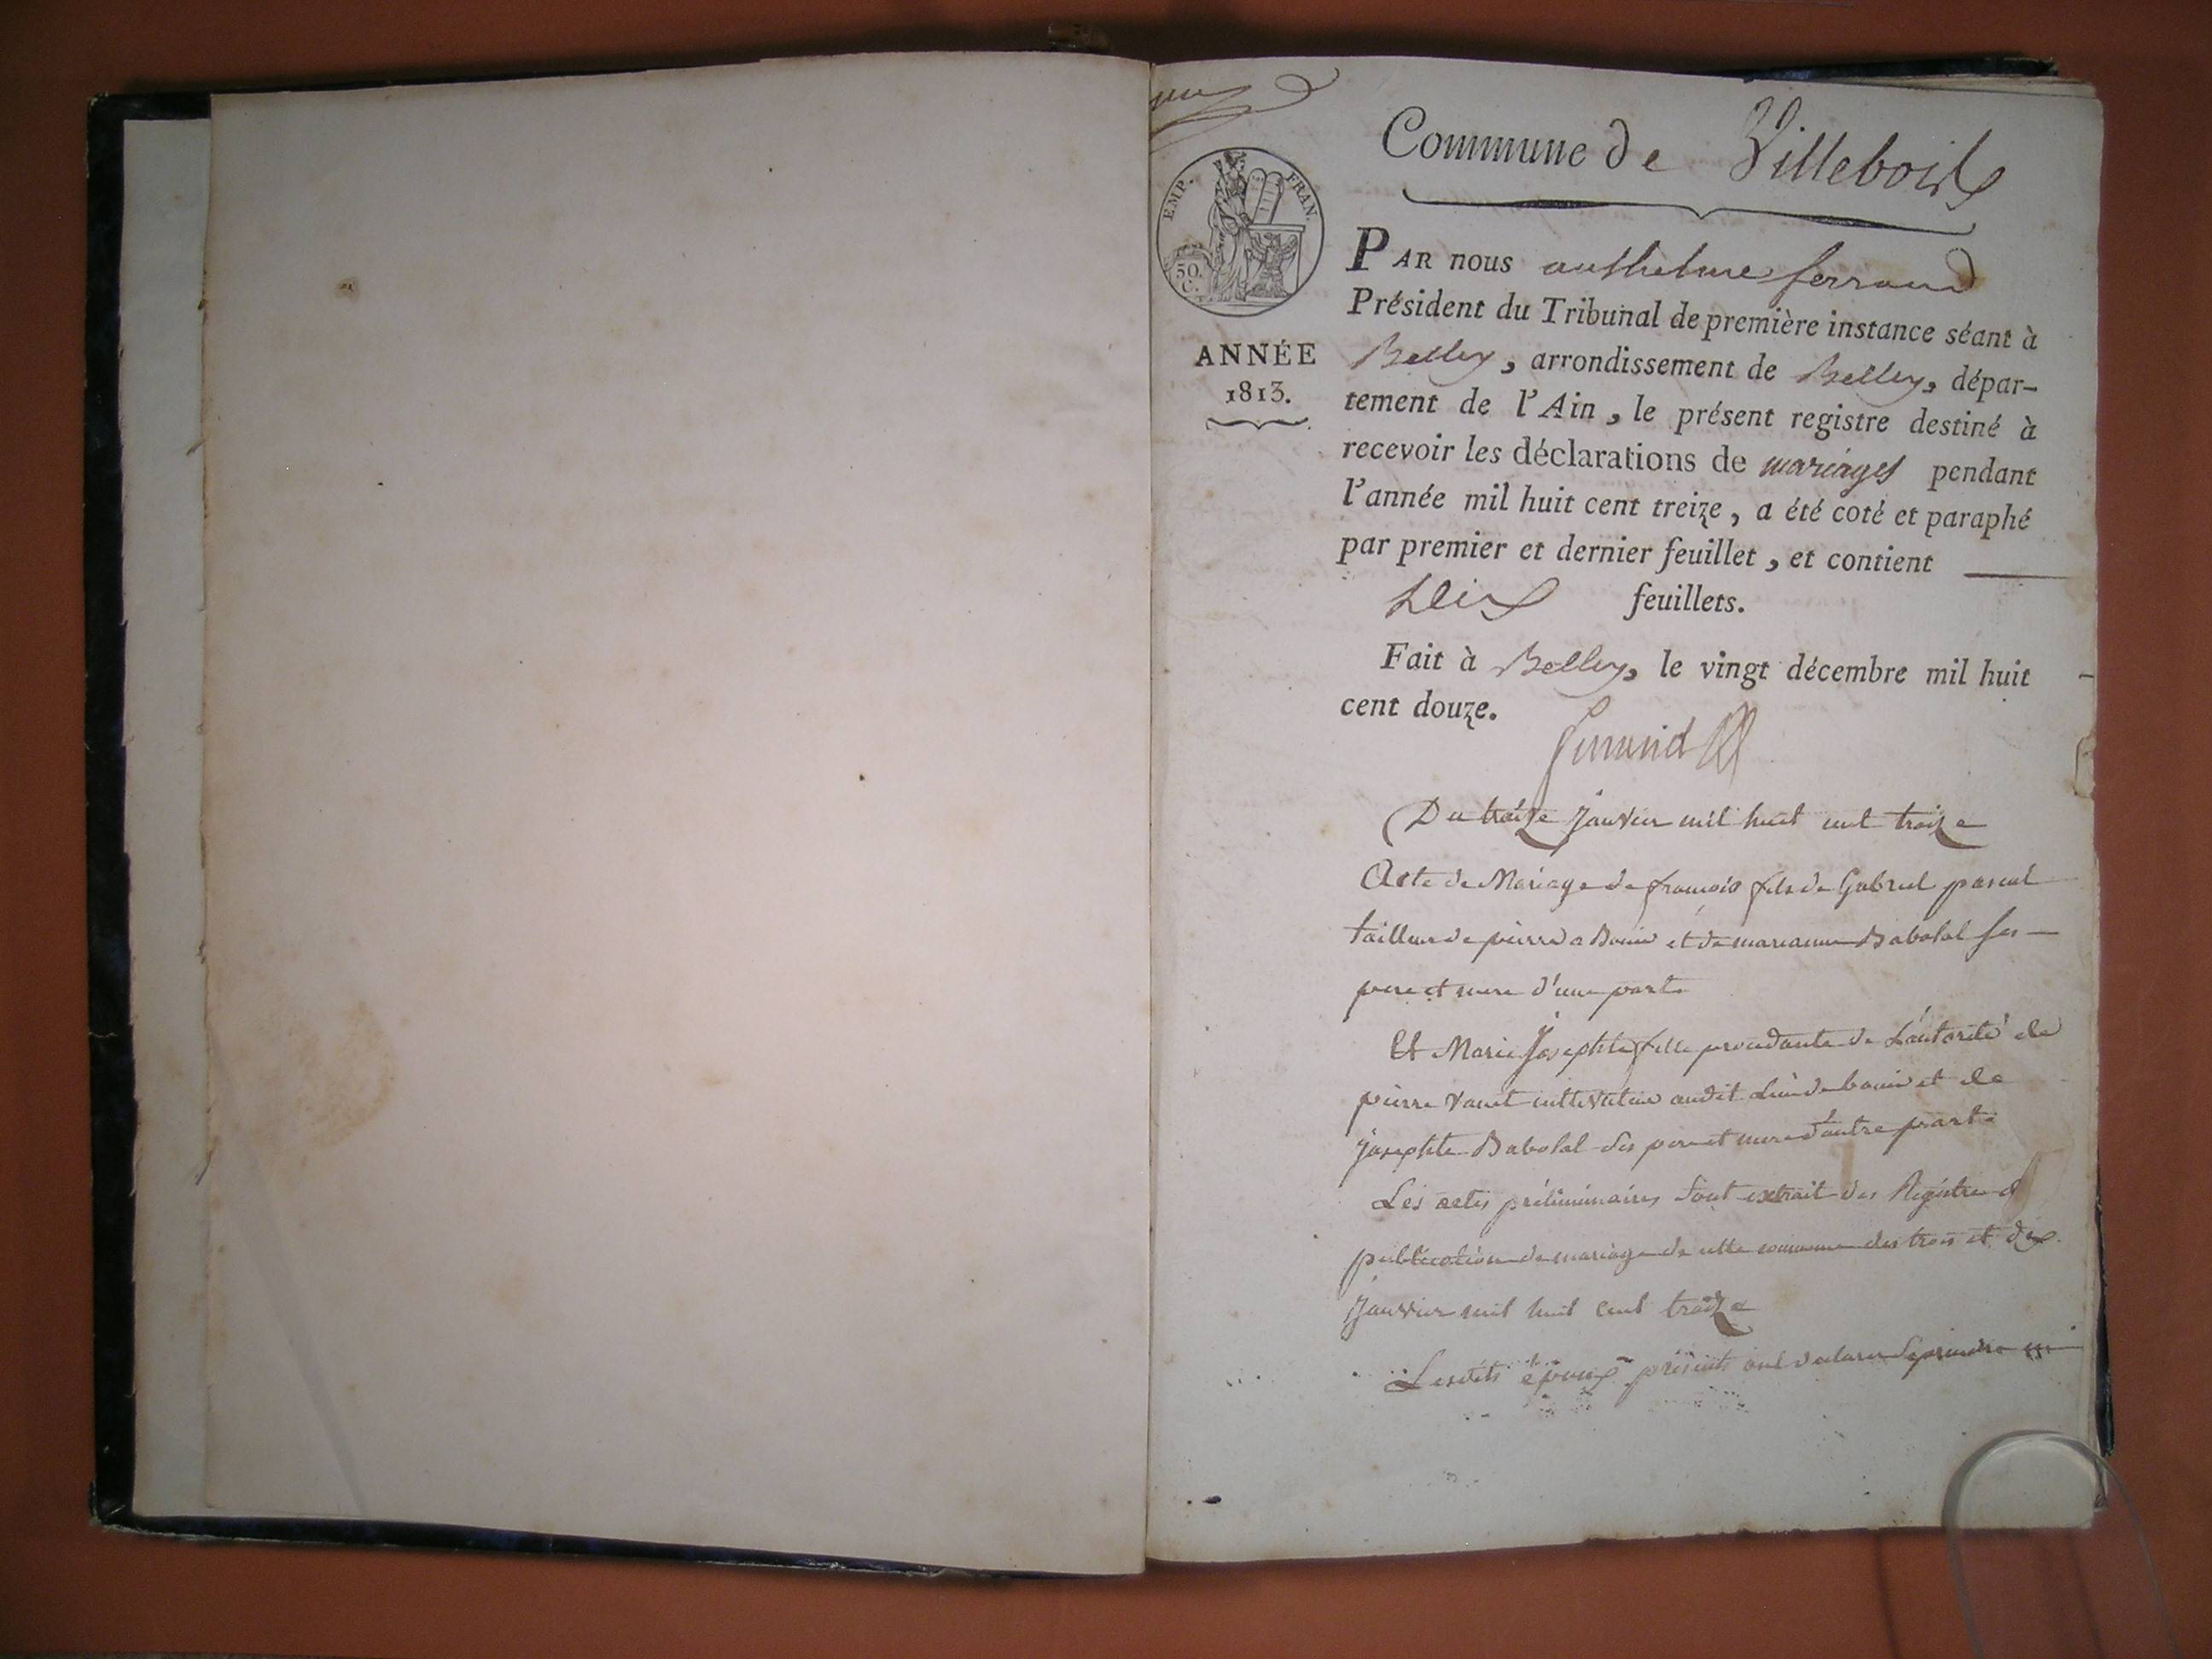 Commune de Villebois
EMP. FRAN.
50.
C.
ANNÉE
1813.
PAR nous anthelme ferrand
Président du Tribunal de première instance séant à
Belley, arrondissement de Belley, dépar-
tement de l'Ain, le présent registre destiné à
recevoir les déclarations de mariages pendant
l'année mil huit cent treize, a été coté et paraphé
par premier et dernier feuillet, et contient
feuillets.
Fait à Belley, le vingt décembre mil huit
cent douze.
Du treize Janvier mil huit cent treize
Acte de Mariage de françois fils de Gabriel pascal
tailleur de pierre a Bouis et de marianne Babolal ses
pere et mere d'une part
Et Marie Josephte fille procedante de L'autorité de
pierre vanet cultivateur audit Lieu de bouis et de
josephte Babolal ses pere et mere d'autre part
Les actes préliminaires sont extrait des Régistre d
publication de mariage de cette commune des trois et dix
Janvier mil huit cent treize
Lesdits époux présents ont declarer se prendre en